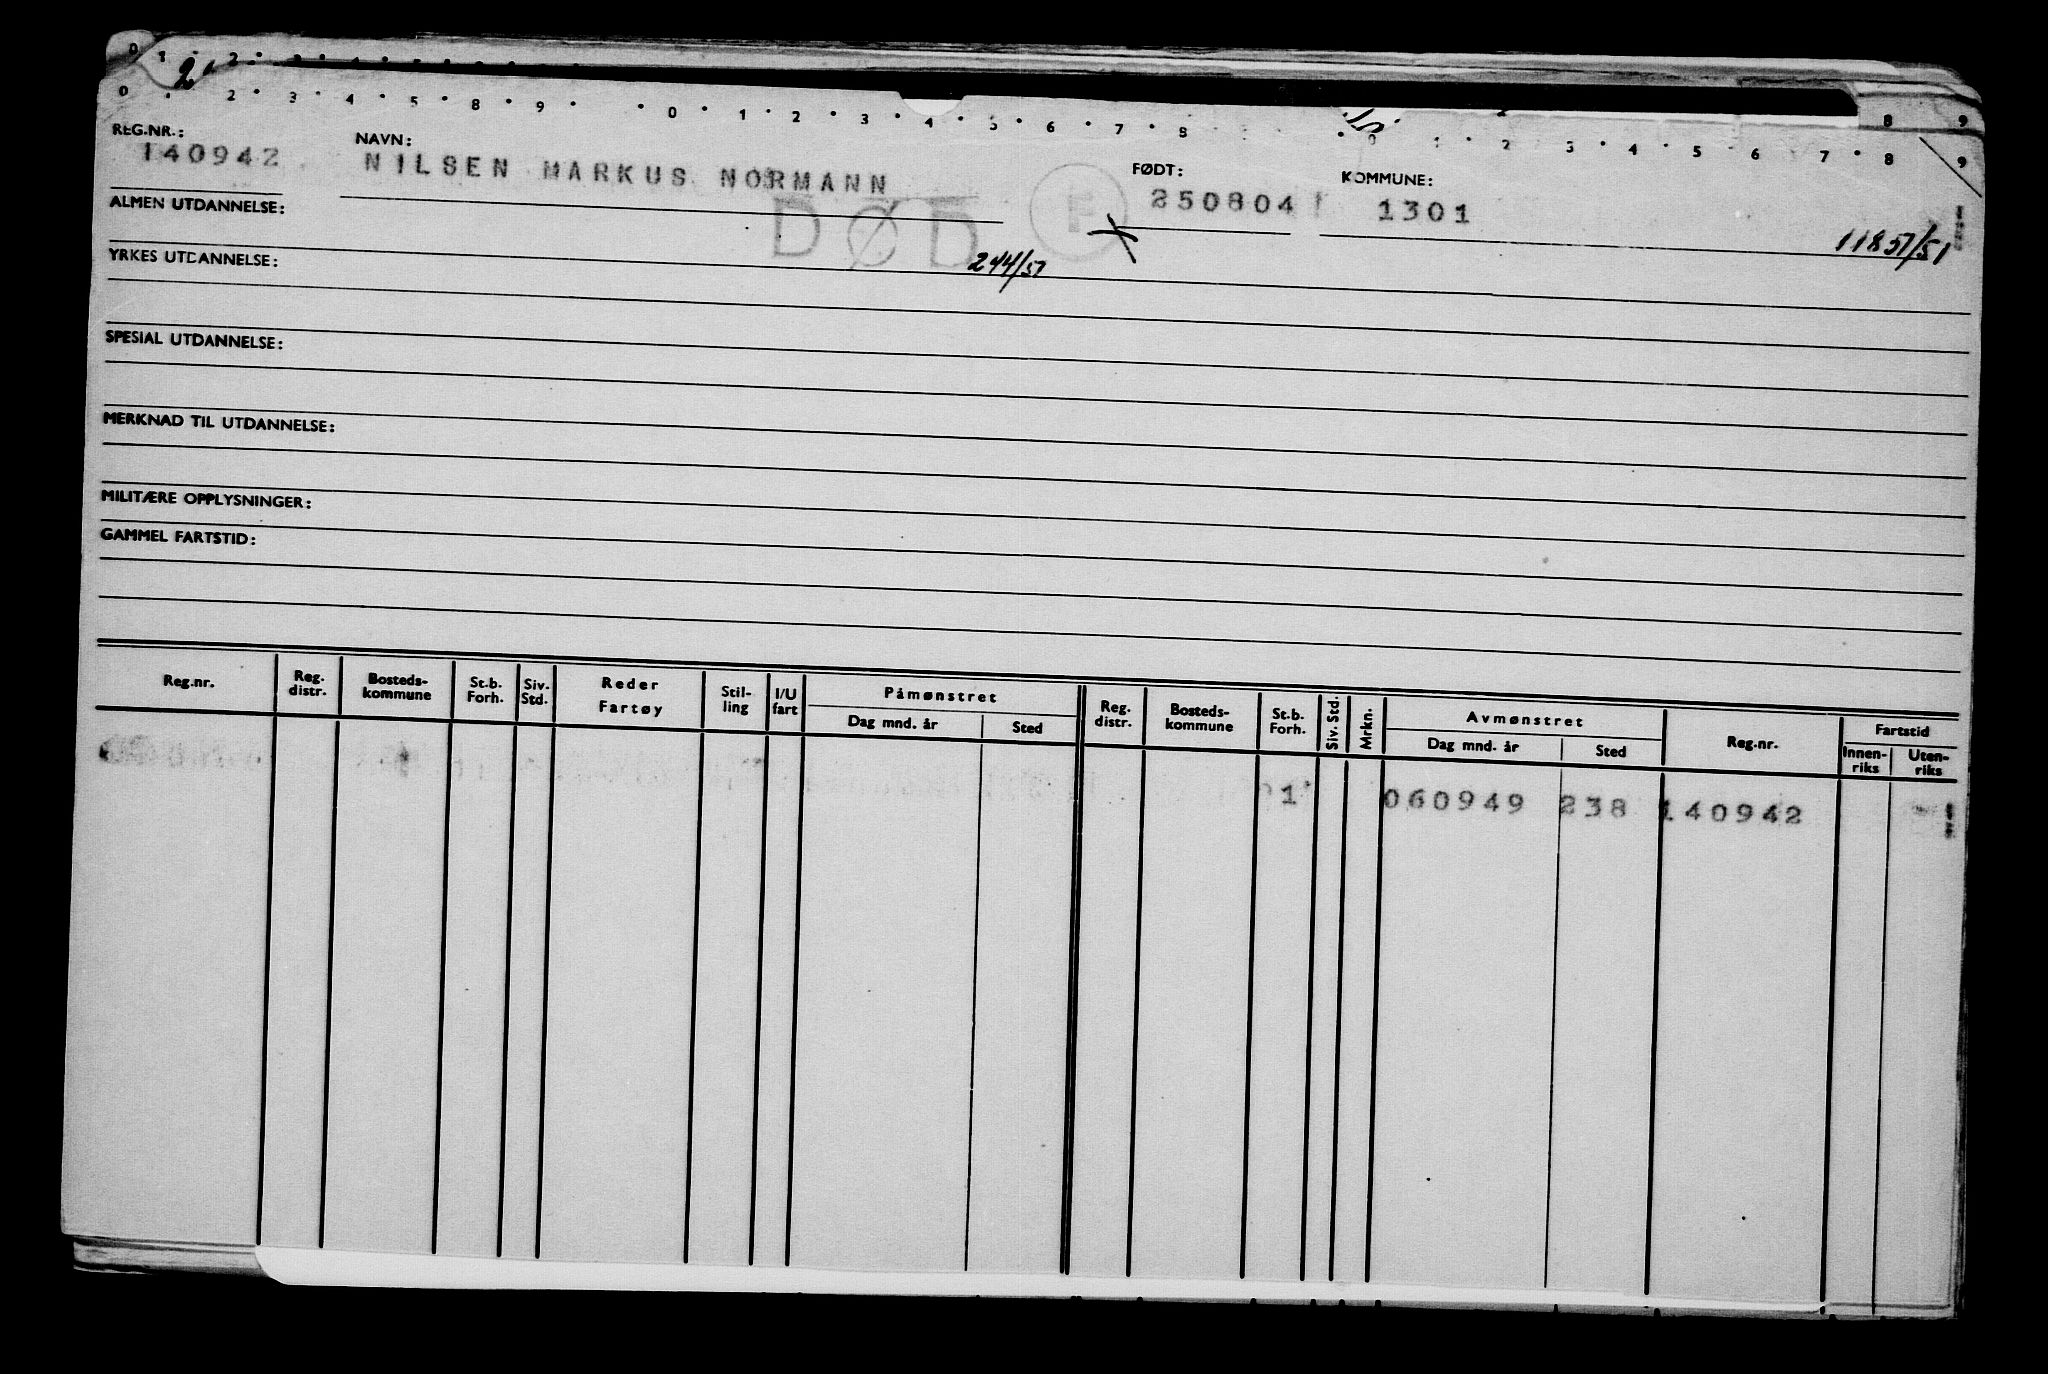 0 1 2 2
0 2 3 4 5 8 9 0 1 2 3 4 5 6 7 8 0 1 2 3 4 5 6 7 8 9
REG.NR.: NAVN: FØDT: KOMMUNE:
140942 NILSEN MARKUS NORMANN 250804 1301
ALMEN UTDANNELSE: DØD F 11857/51
YRKES UTDANNELSE: 244/51
SPESIAL UTDANNELSE:
MERKNAD TIL UTDANNELSE:
MILITÆRE OPPLYSNINGER:
GAMMEL FARTSTID:
Reg.nr. Reg. distr. Bosteds-kommune St.b. Forh. Siv. Std. Reder Fartøy Stil-ling I/U fart Påmønstret Dag mnd. år Sted Reg. distr. Bosteds-kommune St.b. Forh. Siv. Std. Mrkn. Avmønstret Dag mnd. år Sted Reg.nr. Fartstid Innen-riks Uten-riks
1 060949 238 140942